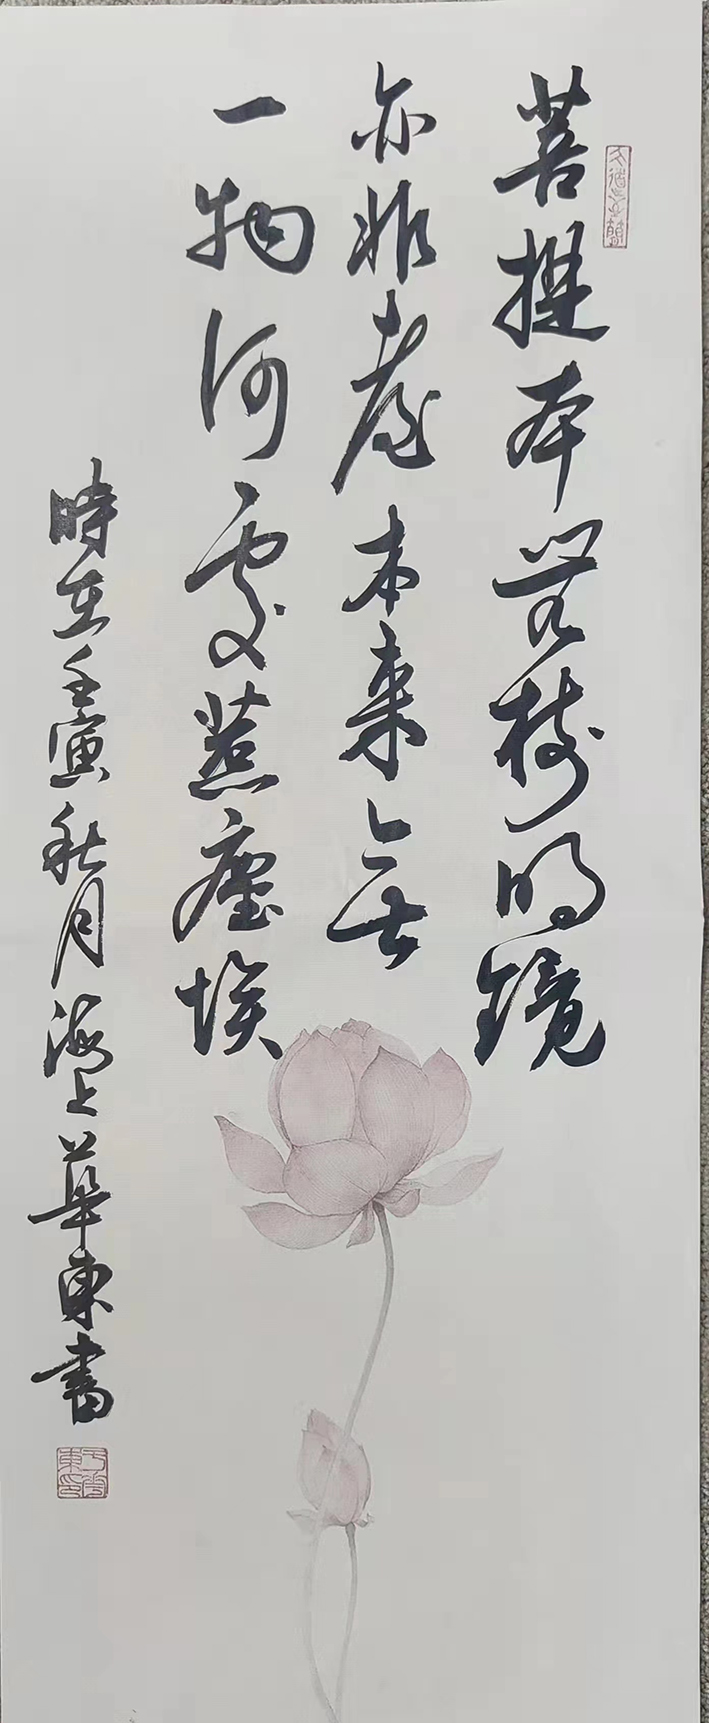 大道至簡
菩提本無樹明鏡
亦非臺本來無
一物何處惹塵埃
時在壬寅秋月海上華東書